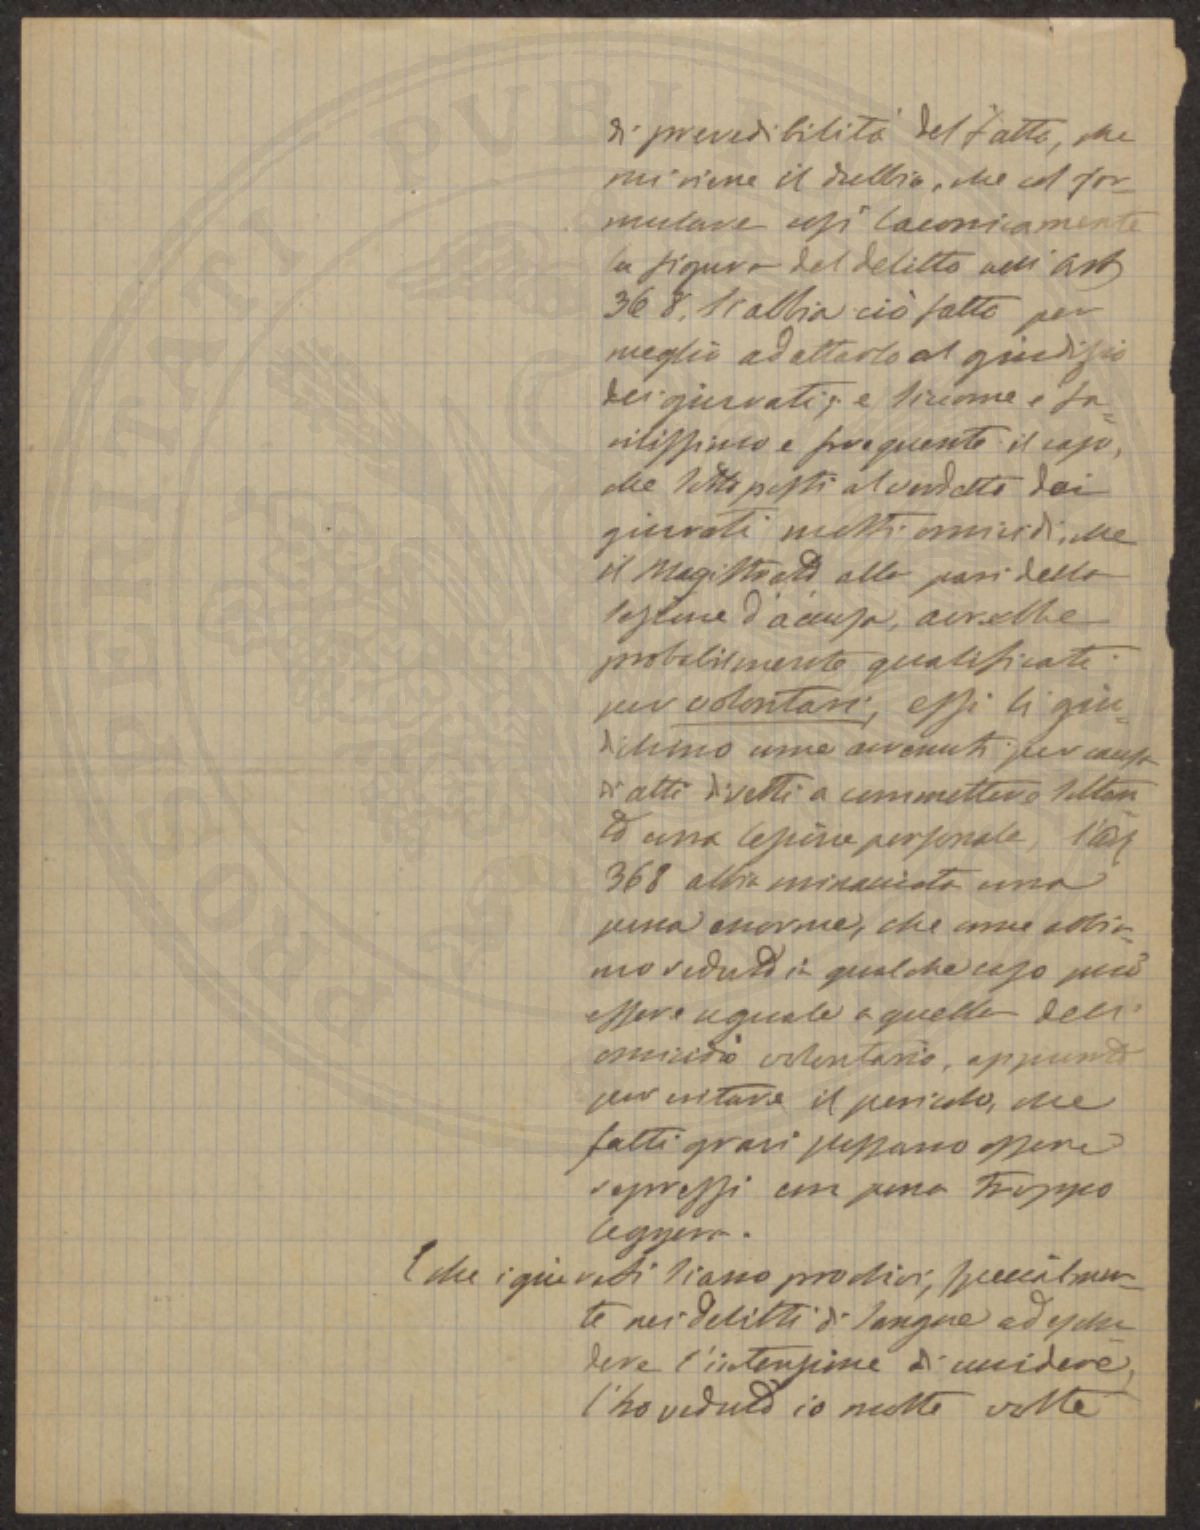 di prevedibilità del fatto, che
mi viene il dubbio, che col for-
mulare così laconicamente
la figura del delitto nell'art
368, si abbia ciò fatto per
meglio adattarlo al giudizio
dei giurati; e siccome e fa-
cilissimo e frequente il caso,
che sottoposti al verdetto dei
giurati molti omicidi, che
il Magistrato alla pari della
sezione d'accusa, avrebbe
probabilmente qualificati
per volontari, essi li giu-
dichino come avvenuti per causa
di atti diretti a commettere soltan
to una lesione personale, l'art
368 abbia minacciata una
pena enorme, che come abbia-
mo veduto in qualche caso può
essere uguale a quella dell'
omicidio volontario, appunto
per evitare il pericolo, che
fatti gravi possano essere
repressi con pena troppo
leggera.
E che i giurati siano proclivi, specialmen-
te nei delitti di sangue ad esclu
dere l'intenzione di uccidere,
l'ho veduto io molte volte